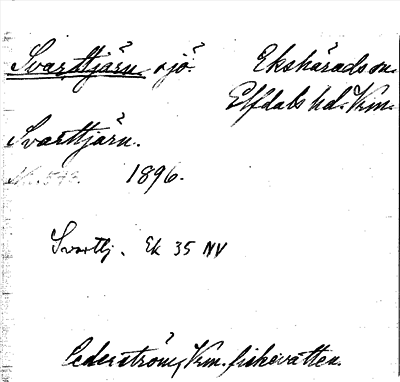 Svarttjärn sjö. Ekshärads sn.
Elfdals hd. Vrm.
Svarttjärn.
1896.
Svarttj. Ek 35 NV
Cederström, Vrm. fiskevatten.